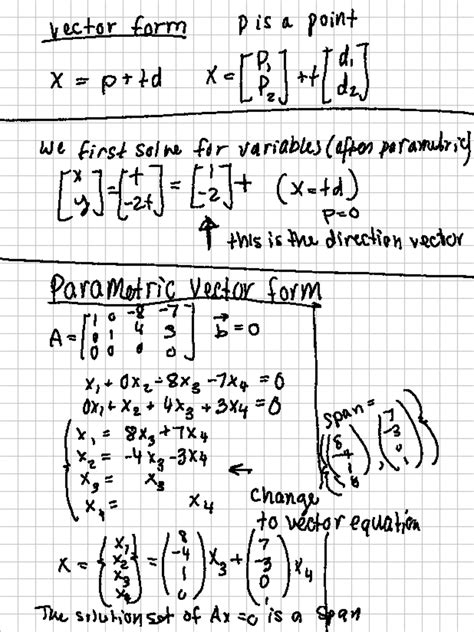 vector form    p is a point
x = p + td    x = [P₁ P₂] + t [d₁ d₂]
We first solve for variables (often parametric)
[x y] = [t -2t] = [1 -2] t    (x = td)
p=0
↑ this is the direction vector
Parametric Vector form
A = [1 0 -8 -7
0 1 4 3
0 0 0 0]    b⃗ = 0
x₁ + 0x₂ - 8x₃ - 7x₄ = 0
0x₁ + x₂ + 4x₃ + 3x₄ = 0
x₁ = 8x₃ + 7x₄
x₂ = -4x₃ - 3x₄
x₃ = x₃
x₄ = x₄
← change
to vector equation
span =
{(8 -4 1 0), (7 -3 0 1)}
x = {x₁ x₂ x₃ x₄} = (8 -4 1 0) x₃ + (7 -3 0 1) x₄
The solution set of Ax=0 is a span